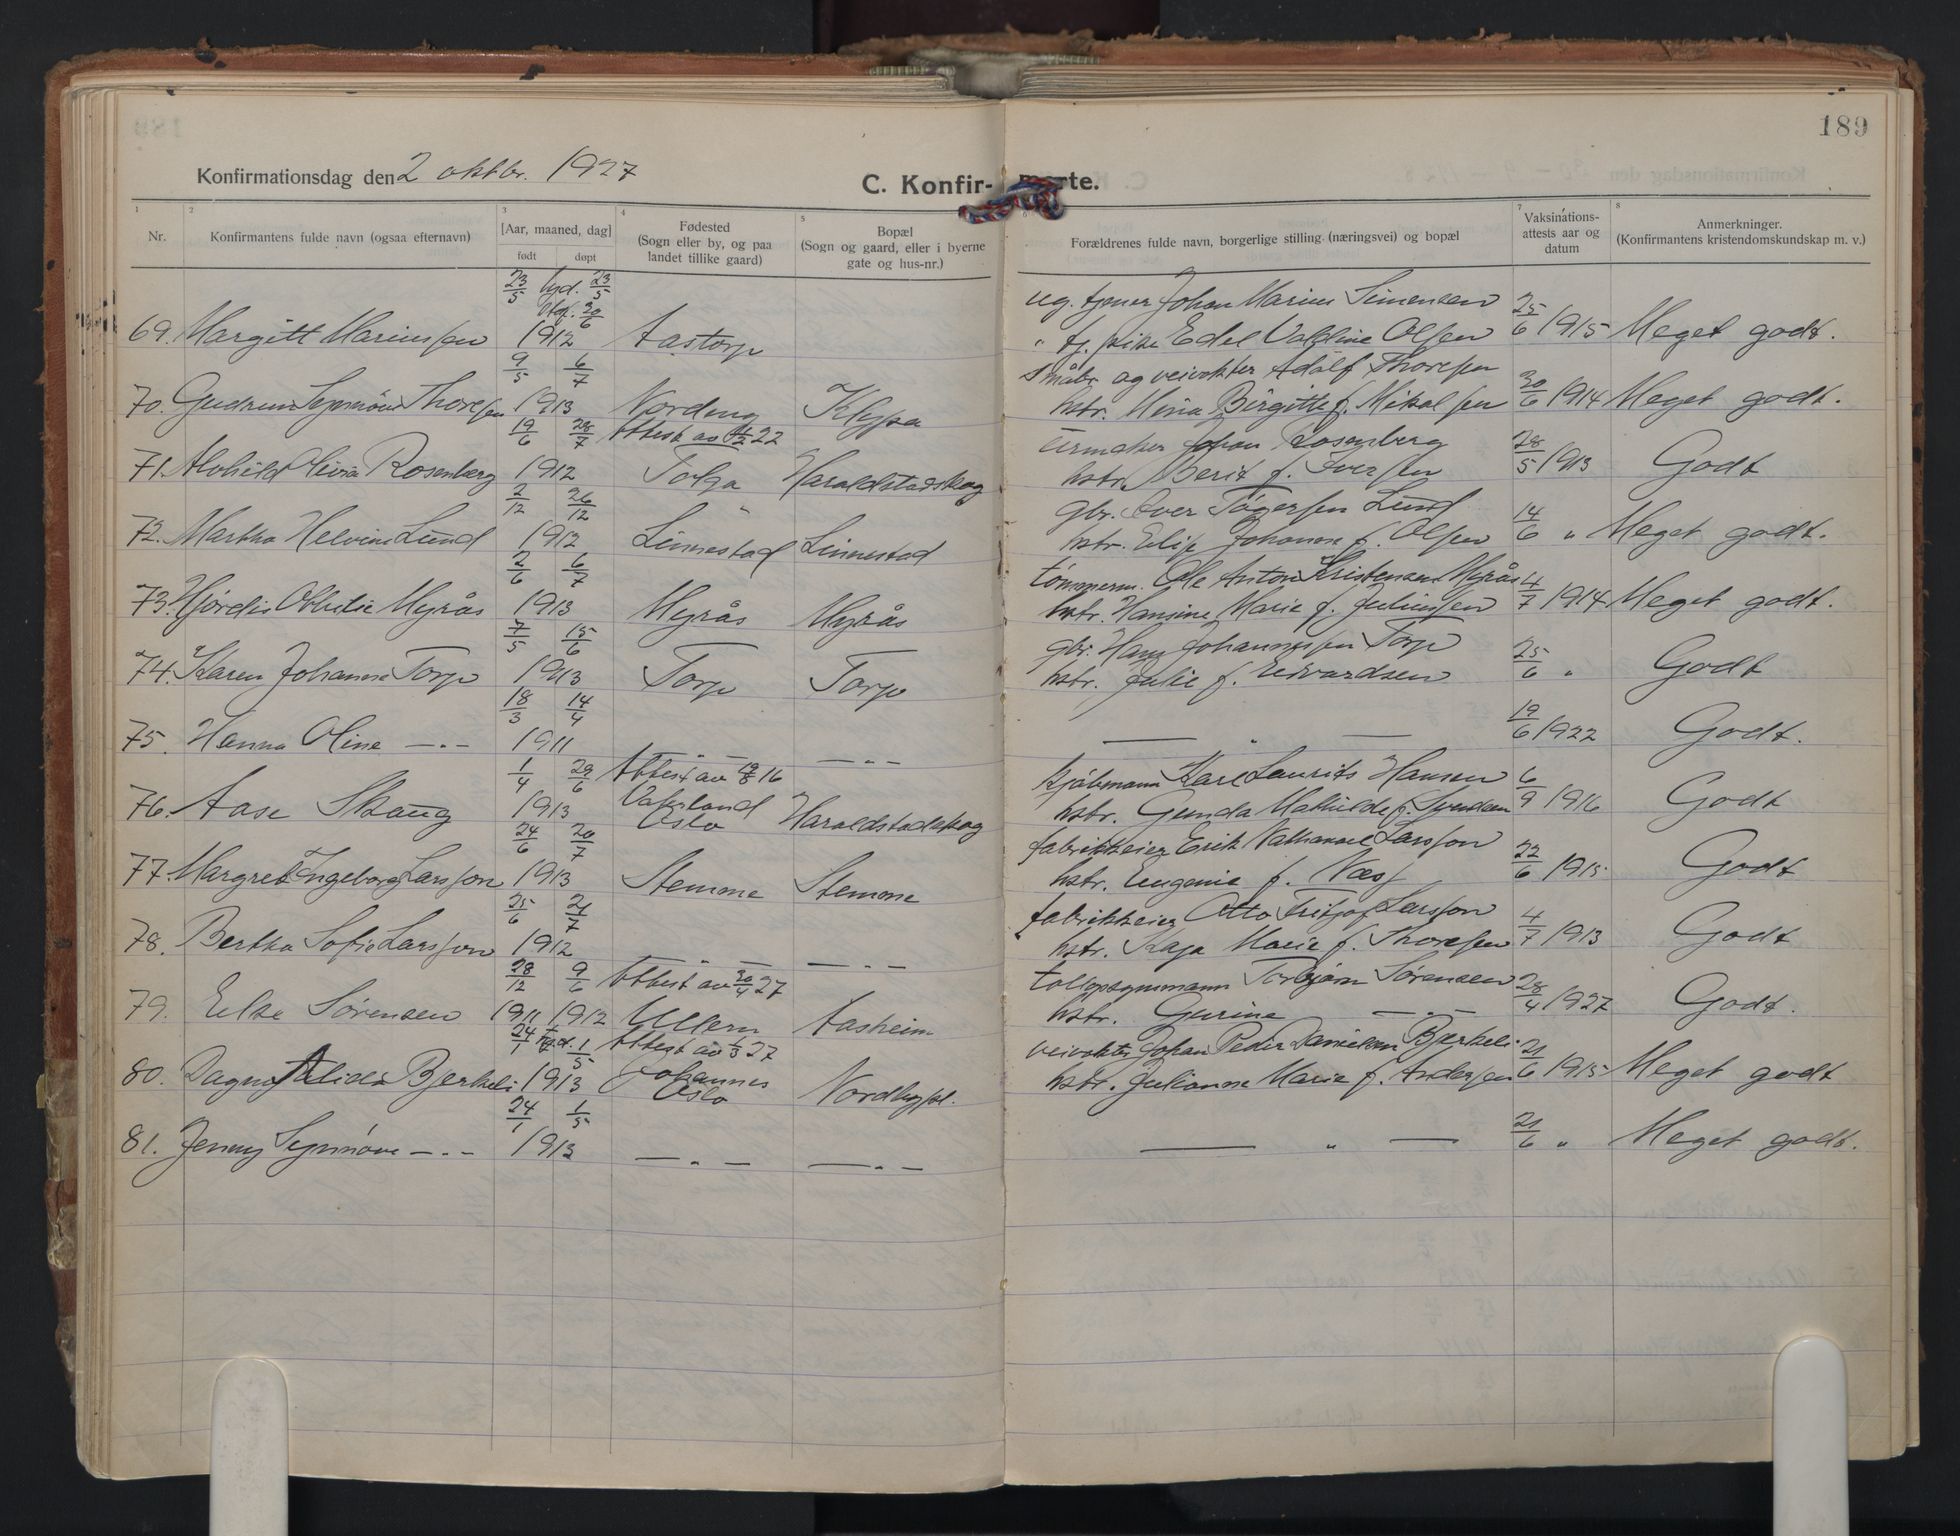 189
Konfirmationsdag den 2 oktbr. 1927
C. Konfir-
1 2 3 4 5 6 7 8
Nr. Konfirmantens fulde navn (ogsaa efternavn) [Aar, maaned, dag] født døpt Fødested (Sogn eller by, og paa landet tillike gaard) Bopæl (Sogn og gaard, eller i byerne gate og hus-nr.) Forældrenes fulde navn, borgerlige stilling (næringsvei) og bopæl Vaksinations-attests aar og datum Anmerkninger. (Konfirmantens kristendomskundskap m. v.)
23/5 hjd. 23/5 20/6 ug. tjener Johan Marius Simensen
69. Margitt Mariussen 1912 Aastorp " tj. pike Edel Valdine Olsen 25/6 1915 Meget godt.
9/5 6/7 Småbr. og veivokter Adolf Thoresen
70. Gudrun Synnöve Thoresen 1913 Nordeng Klypa hstr. Mina Birgitte f. Mikalsen 30/6 1914 Meget godt.
19/6 28/7 Attest av 22 urmaker Johan Rosenberg
71. Alvhild Olivia Rosenberg 1912 Tolga Haraldstadskog hstr. Berit f. Iversen 28/5 1913 Godt
2/12 26/12 gbr. Iver Lund
72. Martha Helvine Lund 1912 Linnestad Linnestad hstr. Elise Johanne f. Olsen 14/6 " Meget godt.
2/6 6/7 tömmerm. Ole Anton Kristensen Myrås
73. Hjördis Othilie Myrås 1913 Myrås Myrås hstr. Hansine Marie f. Juliussen 4/7 1914 Meget godt.
7/5 15/6 gbr. Hans Johannessen Torp
74. Karen Johanne Torp 1913 Torp Torp hstr. Julie f. Edvardsen 25/6 " Godt
18/3 14/4
75. Hanna Oline —"— 1911 —"— —"— — " — 19/6 1922 Godt.
1/4 29/6 Attest av 19/8 16 Karl Laurits Hansen
76. Aase Skaug 1913 Vaterland Oslo Haraldstadskog hstr. Gunda Mathilde f. Svendsen 6/9 1916 Godt
24/6 20/7 fabrikkeier Erik Nathanael Larsson
77. Margret Ingeborg Larsson 1913 Stemme Stemme hstr. Eugenie f. Næss 22/6 1915 Godt
25/6 21/7 fabrikkeier Otto Fritjof Larsson
78. Bertha Sofie Larsson 1912 —"— —"— hstr. Kaja Marie f. Thoresen 4/7 1913 Godt
28/12 9/6 Attest av 20/4 27 tollopsynsmann Torbjörn Sörensen
79. Else Sörensen 1911 1912 Ullern Aasheim hstr. Gurine —"— 28/4 1927 Godt.
24/1 1/5 Attest av 1/3 27 veivokter Johan Peder Danielsen Bjerkeli
80. Dagny Alida Bjerkeli 1913 Johannes Oslo Nordbypl. hstr. Julianne Marie f. Andersen 21/6 1915 Meget godt
24/1 1/5
81. Jenny Synnöve —"— 1913 —"— —"— — " — 21/6 " Meget godt.